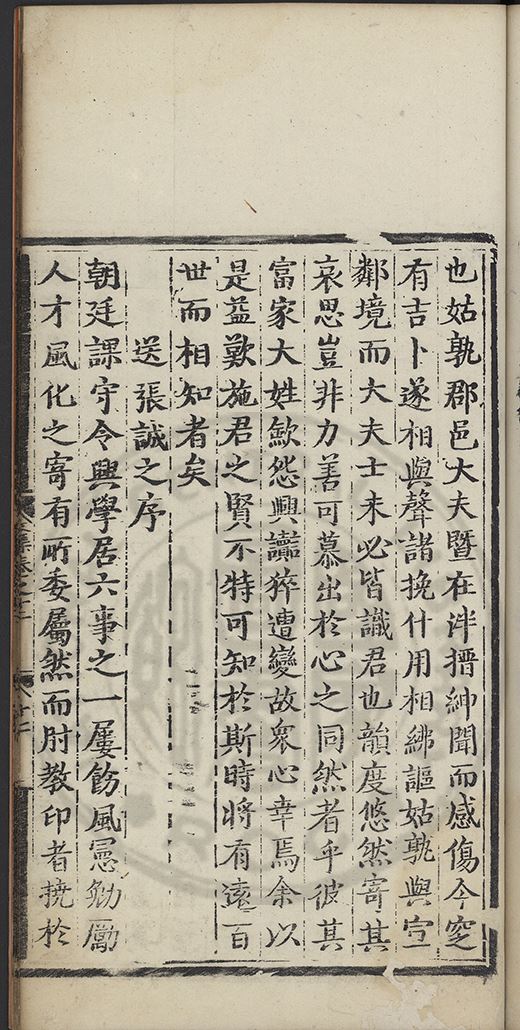 也姑孰郡邑大夫暨在泮搢紳聞而感傷今窆
有吉卜遂相與聲諸挽什用相紼謳姑孰與宣
鄰境而大夫士未必皆識君也韻度悠然寄其
哀思豈非力善可慕出於心之同然者乎彼其
富家大姓歛怨興讟猝遭變故衆心幸焉余以
是益歎施君之賢不特可知於斯時將有遠百
世而相知者矣
送張誠之序
朝廷課守令興學居六事之一屢飭風憲勉勵
人才風化之寄有所委屬然而肘教印者撓於